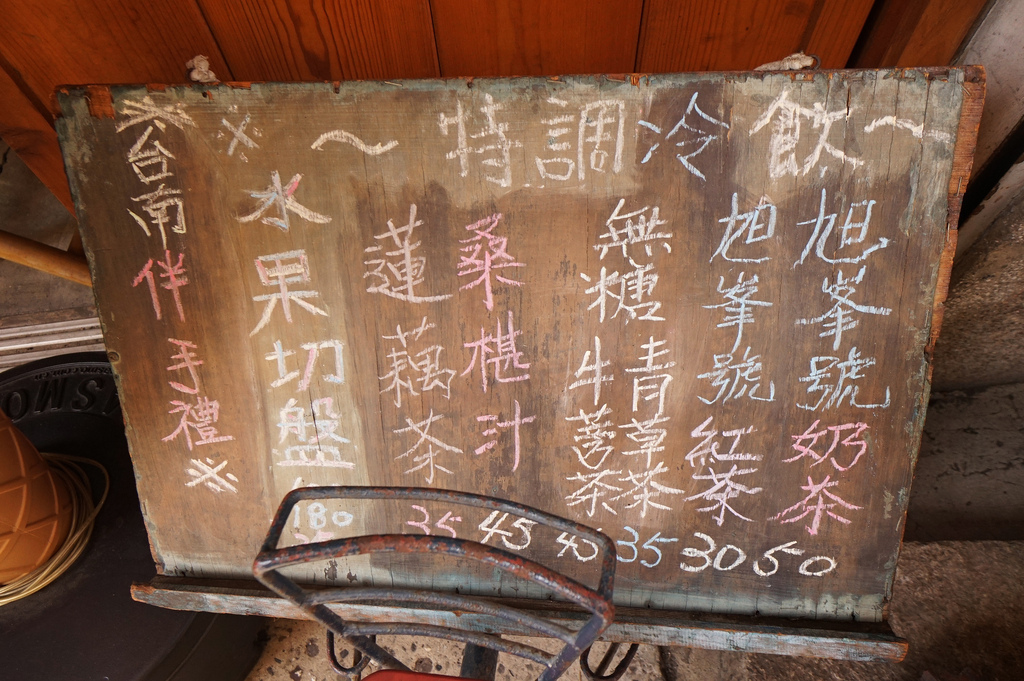 ~特調冷飲~
旭峯號奶茶 50
旭峯號紅茶 30
無糖
青草茶 35
牛蒡茶 45
桑椹汁 45
蓮藕茶 35
※水果切盤 180
※台南伴手禮※